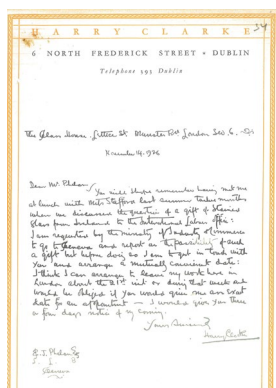 34
HARRY CLARKE
6 NORTH FREDERICK STREET • DUBLIN
Telephone 595 Dublin
The Glass House. Lettice St Munster Rd London SW. 6.
November 14. 1926
Dear Mr. Phelan / You will I hope remember having met me
at lunch with Miss Stafford last summer twelve months
when we discussed the question of a gift of Stained
Glass from Ireland to the International Labour Office:
I am requested by the Ministry of Industry & Commerce
to go to Geneva and report on the possibility of such
a gift but before doing so I am to get in touch with
you and arrange a mutually convenient date:
I think I can arrange to leave my work here in
London about the 21st inst or during that week and
would be obliged if you would give me an exact
date for an appointment — I would give you three
or four days notice of my coming.
Yours Sincerely
Harry Clarke
E. J. Phelan Esq
Geneva